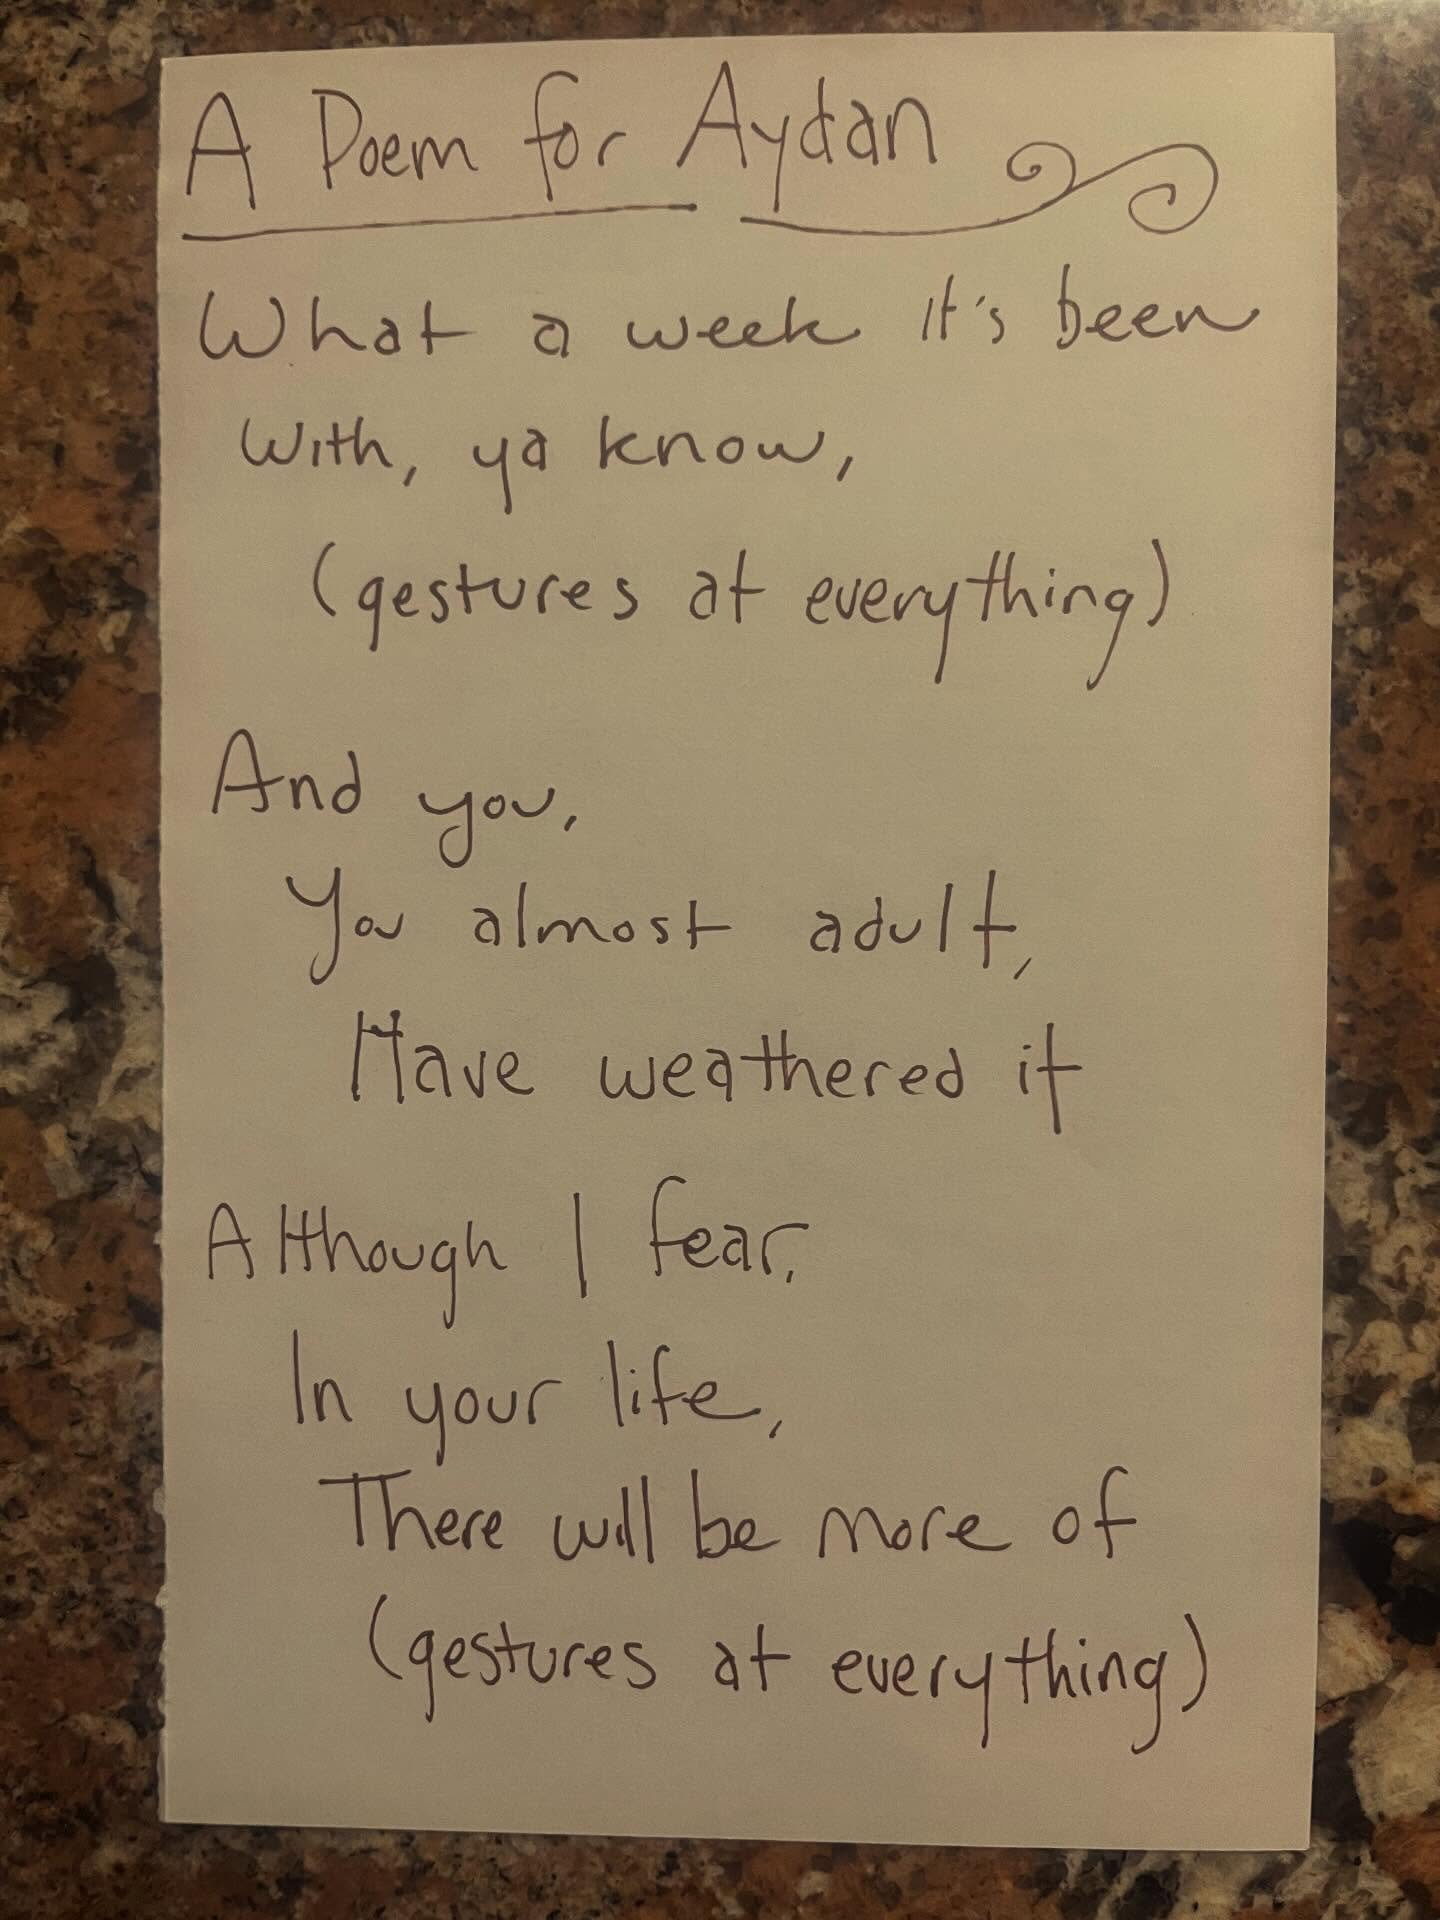 A Poem for Aydan
What a week it's been
With, ya know,
(gestures at everything)
And you,
You almost adult,
Have weathered it
Although I fear,
In your life,
There will be more of
(gestures at everything)